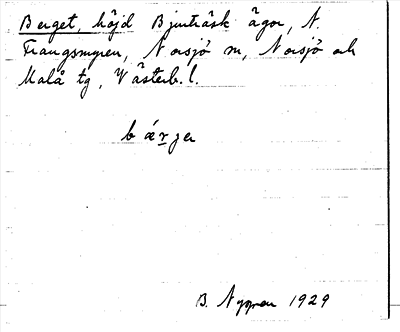 Berget, höjd Bjurträsk ägor, N.
Frangsmyren, Norsjö sn, Norsjö och
Malå tg, Västerb. l.
bárjer
B. Nygren 1929